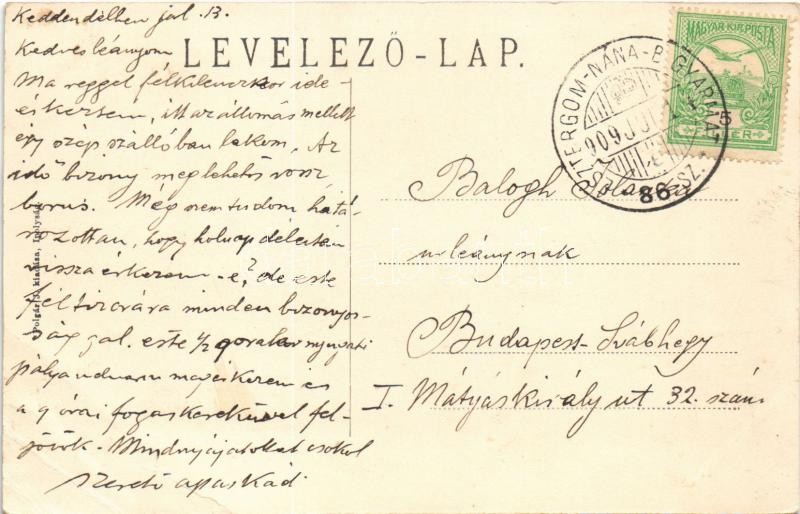 Keddendélben jul. 13.
Kedves leányom
LEVELEZŐ-LAP.
Ma reggel félkilenczkor ide-
érkeztem, itt az állomás mellett
egy szép szállóban lakom. Az
idő bizony meglehetős rossz
borus. Még nem tudom hatá-
rozottan, hogy holnap délután
vissza érkezem-e? de este
féltizórára minden bizonyos-
ság gal. este 1/2 9 órakor nyugati
pályaudvaron megérkezem és
a 9 órai fogaskerekűvel fel-
jövök. Mindnyájatokat csókol
szerető apaskád
Polgár kiadása, Ipolyság
MAGYAR KIR. POSTA
5
FILLÉR
ESZTERGOM-NÁNA-B.GYARMAT
909 JUL
86 SZ.
Balogh
urleánynak
Budapest-Svábhegy
I. Mátyás király út 32. szám.